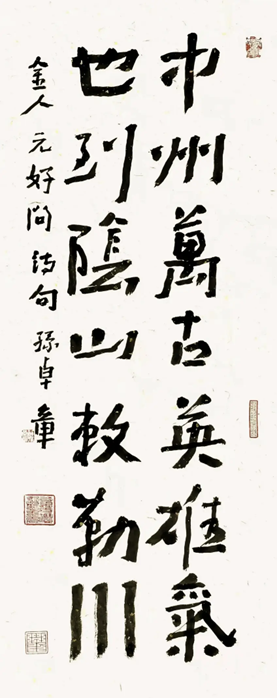 中州萬古英雄氣
也到陰山敕勒川
金人元好問詩句孫卓章